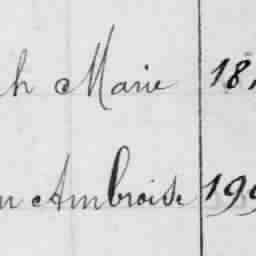 h Marie 18
n Ambroise 199